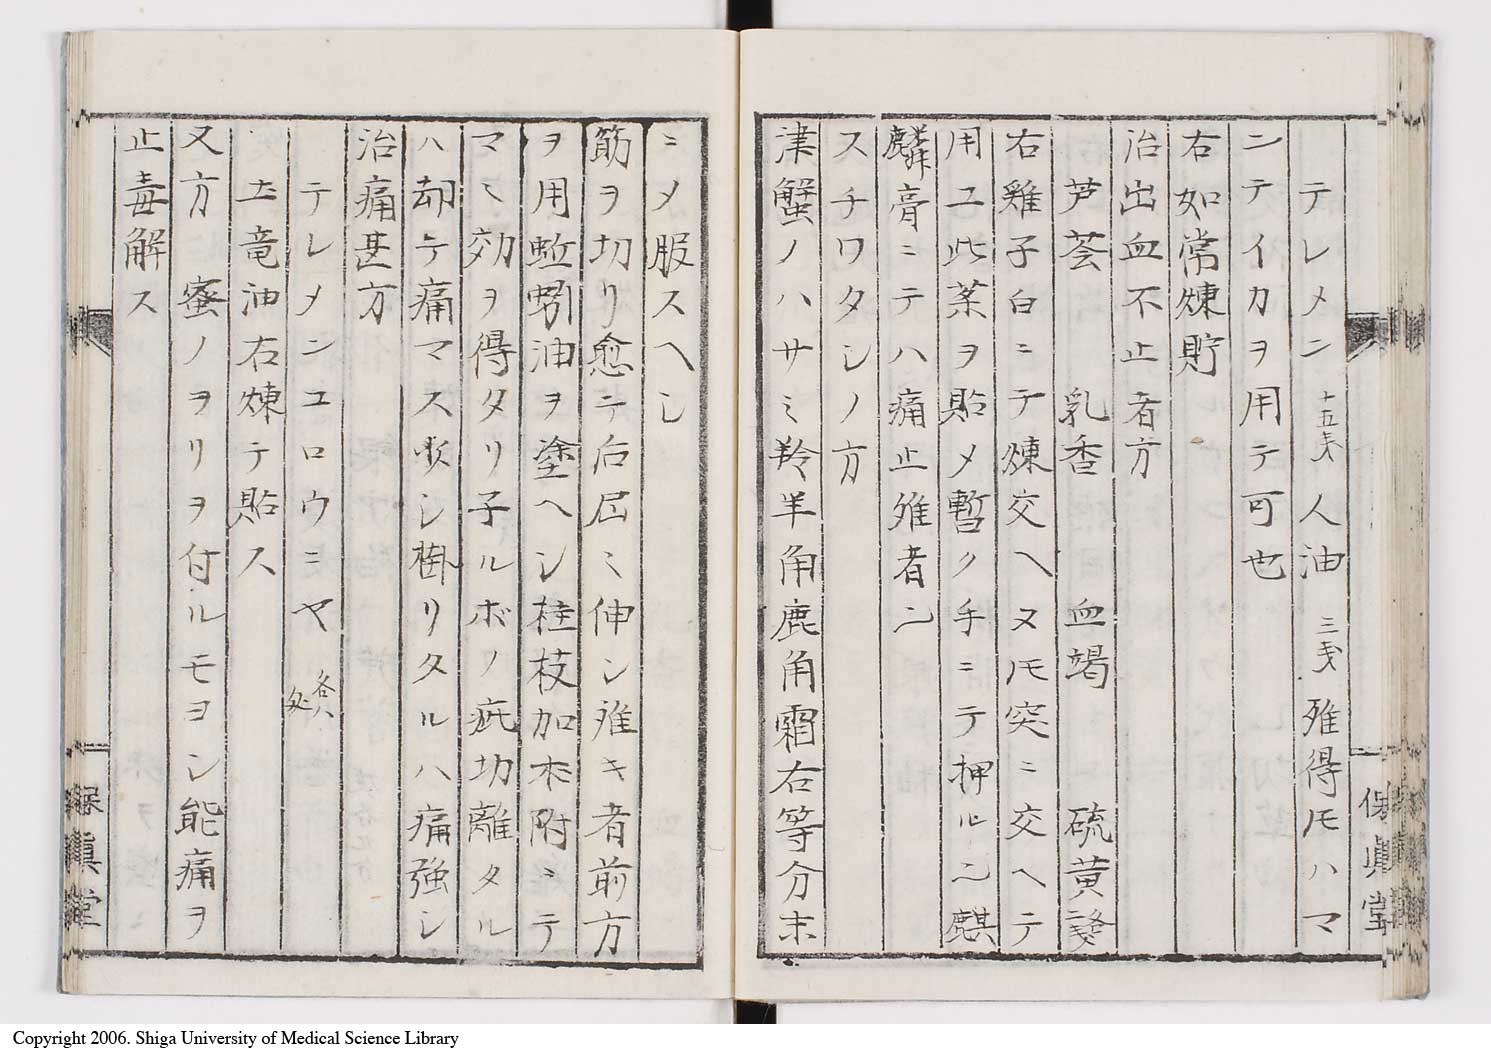 テレメン 十五戔 人油 三戔 難得𪜈ハマ
ンテイカヲ用テ可也
右如常煉貯
治出血不止者方
芦薈 乳香 血竭 硫黄
右雞子白ニテ煉交ヘ又𪜈突ニ交ヘテ
用ユ此薬ヲ貼メ暫ク手ニテ押ルニ麒
麟膏ニテハ痛止難者ニ
スチワタシノ方
津蟹ノハサミ羚羊角鹿角霜右等分末
ニメ服スヘし
筋ヲ切リ愈テ后屈ミ伸シ難キ者前方
ヲ用蚯蚓油ヲ塗ヘシ桂枝加朮附ニテ
マミ効ヲ得タリ子ルボノ疵切離タル
ハ却テ痛マス少シ掛リタルハ痛強シ
治痛甚方
テレメンユロウニヤ 各八処
土竜油右煉テ貼ス
又方 蜜ノヲリヲ付ルモヨシ能痛ヲ
止毒解ス
保眞堂
保眞堂
Copyright 2006. Shiga University of Medical Science Library